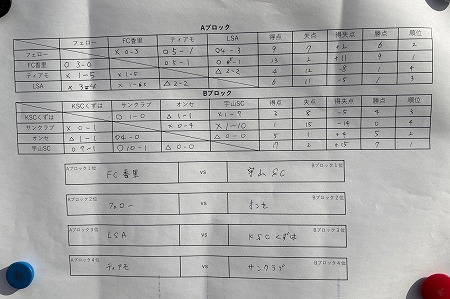 Aブロック
フェロー FC香里 ティアモ LSA 得点 失点 得失点 勝点 順位
フェロー × 0-3 ○ 5-1 ○ 4-3 9 7 +2 6 2
FC香里 ○ 3-0 ○ 5-1 13 2 +11 9 1
ティアモ × 1-5 × 1-5 △ 2-2 4 12 -8 1 4
LSA △ 2-2 6 11 -5 1 3
Bブロック
KSCくずは サンクラブ オンセ 宇山SC 得点 失点 得失点 勝点 順位
KSCくずは ○ 1-0 △ 1-1 × 1-7 3 8 -5 4 3
サンクラブ × 0-1 × 0-4 × 1-10 1 15 -14 0 4
オンセ △ 1-1 ○ 4-0 △ 0-0 5 1 +4 5 2
宇山SC ○ 7-1 ○ 10-1 △ 0-0 17 2 +15 7 1
Aブロック1位 FC香里 vs 宇山SC Bブロック1位
Aブロック2位 フェロー vs オンセ Bブロック2位
Aブロック3位 LSA vs KSCくずは Bブロック3位
Aブロック4位 ティアモ vs サンクラブ Bブロック4位